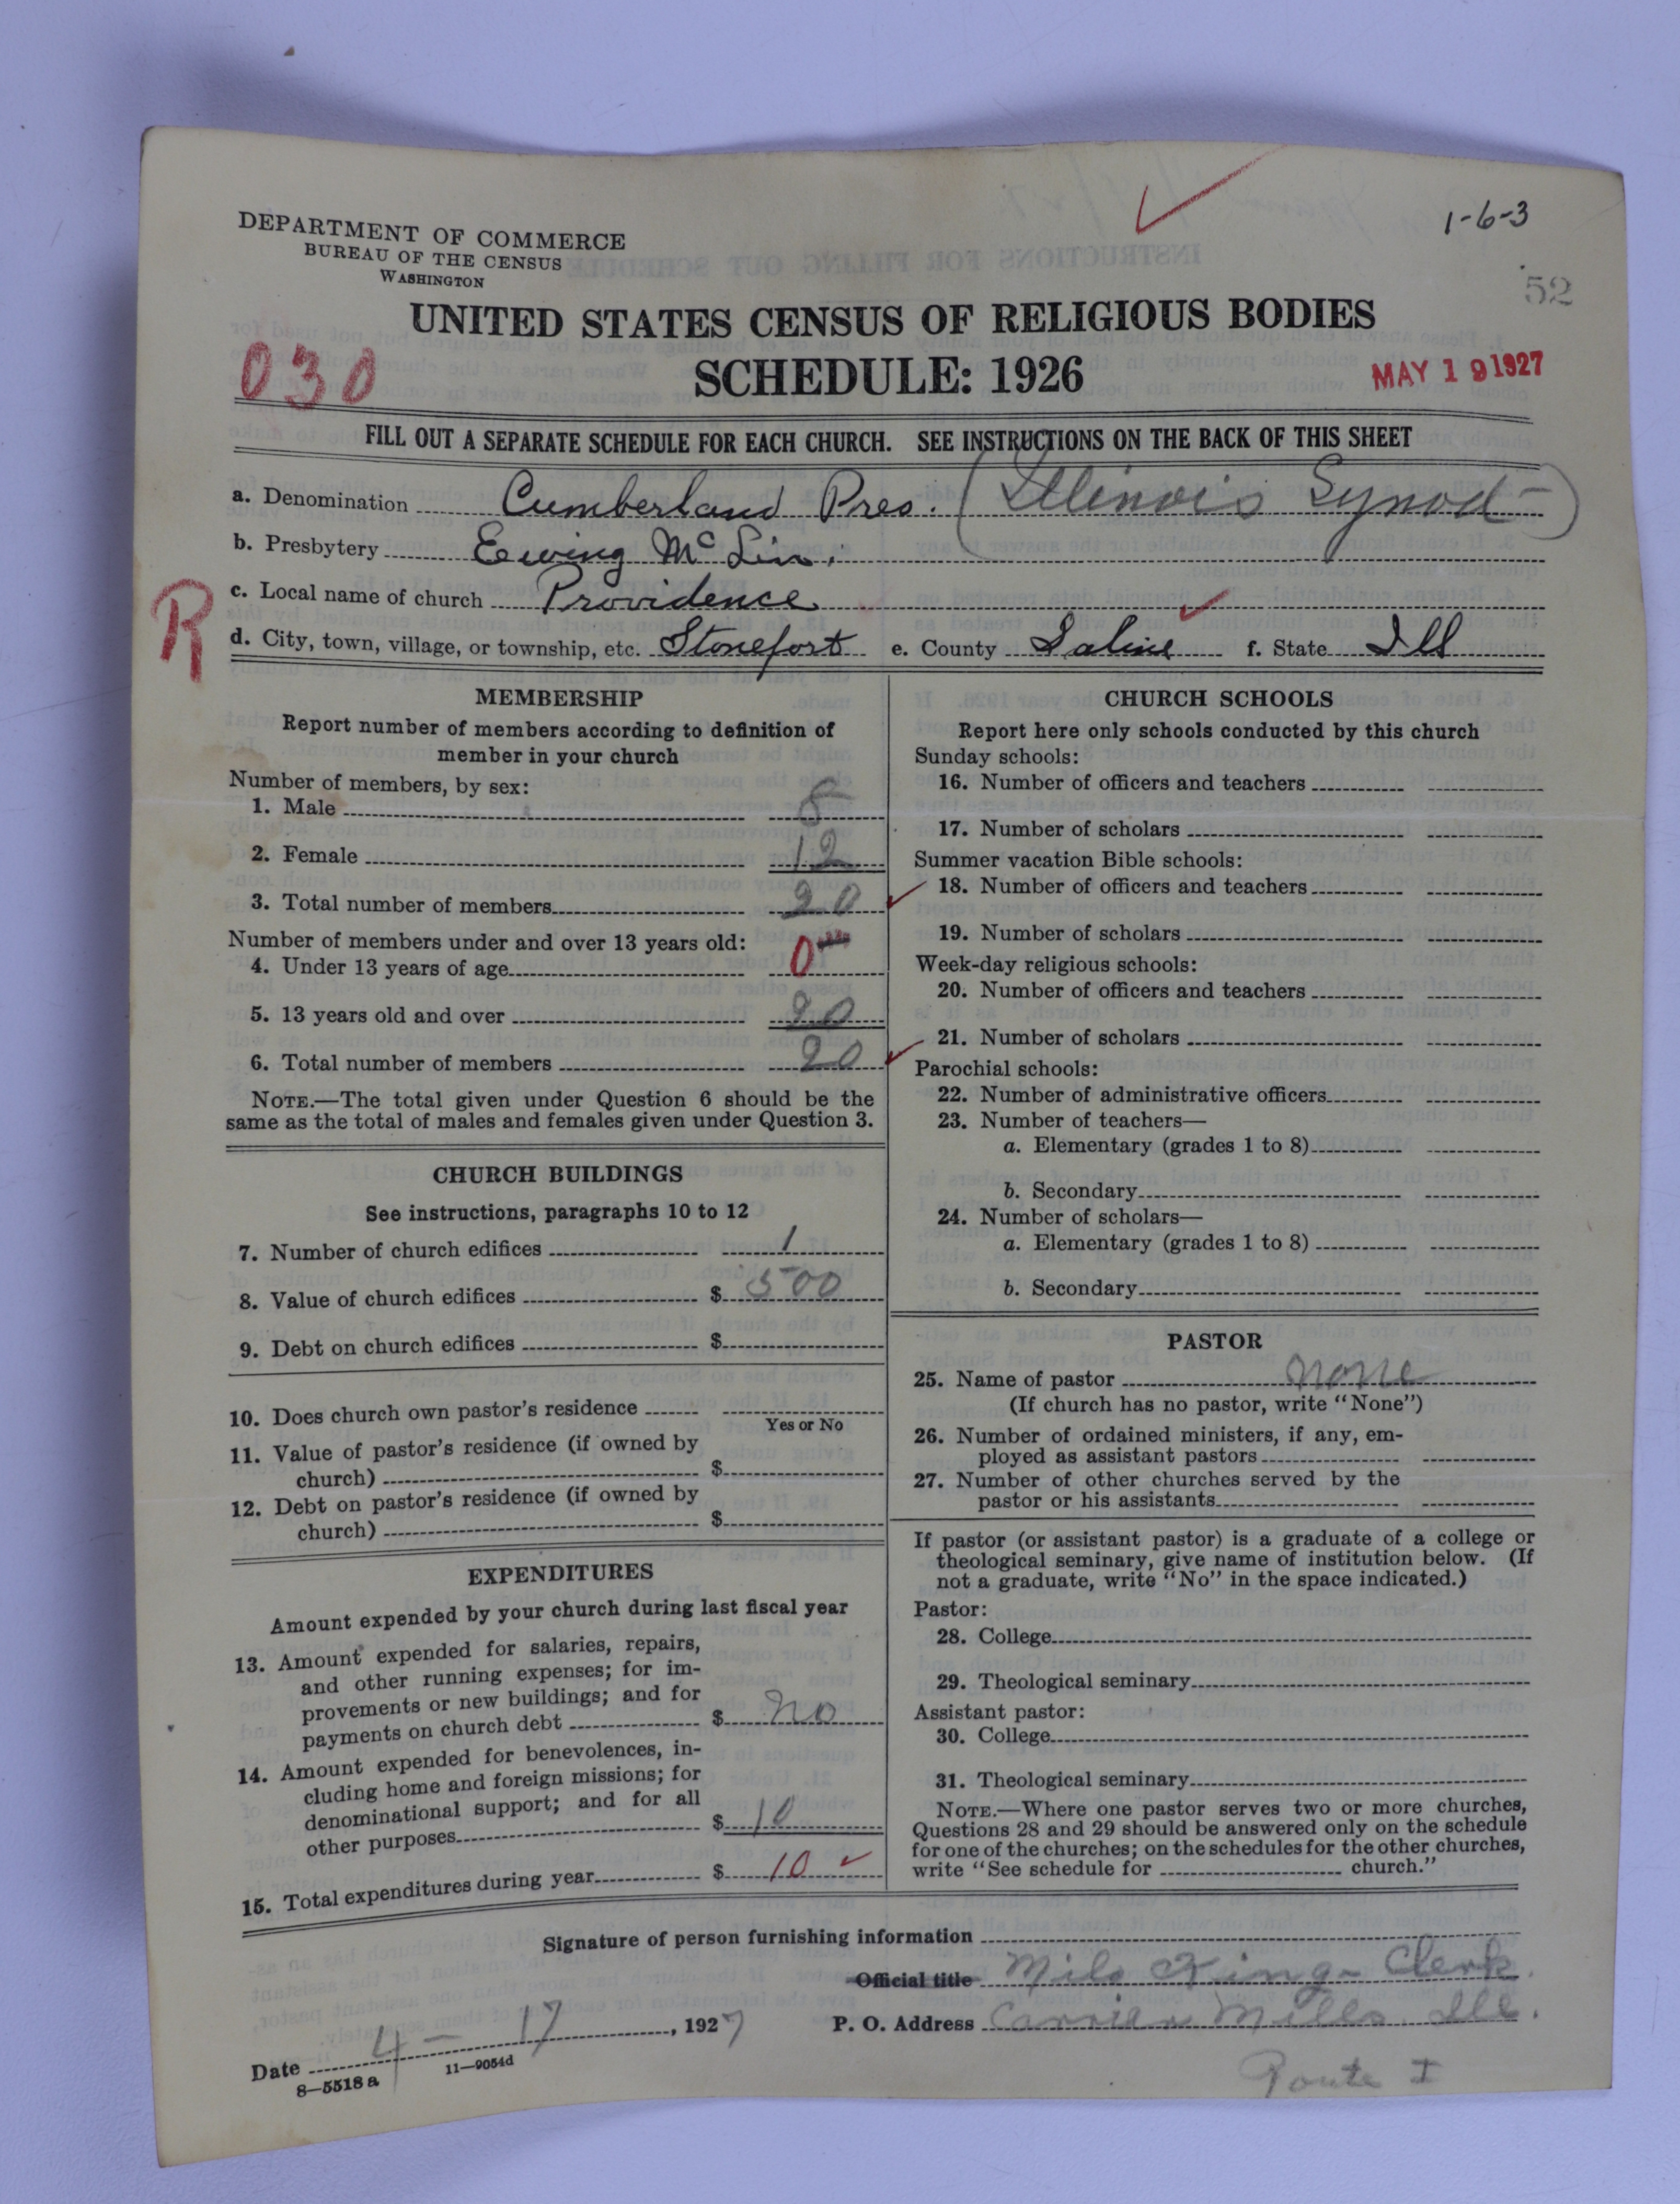 1-6-3
DEPARTMENT OF COMMERCE
BUREAU OF THE CENSUS
WASHINGTON
52
UNITED STATES CENSUS OF RELIGIOUS BODIES
030
SCHEDULE: 1926
MAY 19 1927
FILL OUT A SEPARATE SCHEDULE FOR EACH CHURCH. SEE INSTRUCTIONS ON THE BACK OF THIS SHEET
a. Denomination Cumberland Pres. (Illinois Synod-)
b. Presbytery Ewing McLin.
R
c. Local name of church Providence
d. City, town, village, or township, etc. Stonefort e. County Saline f. State Ill
MEMBERSHIP
Report number of members according to definition of
member in your church
Number of members, by sex:
1. Male 8
2. Female 12
3. Total number of members 20
Number of members under and over 13 years old:
4. Under 13 years of age 0
5. 13 years old and over 20
6. Total number of members 20
NOTE.—The total given under Question 6 should be the
same as the total of males and females given under Question 3.
CHURCH BUILDINGS
See instructions, paragraphs 10 to 12
7. Number of church edifices 1
8. Value of church edifices $ 500
9. Debt on church edifices $
10. Does church own pastor's residence
Yes or No
11. Value of pastor's residence (if owned by
church) $
12. Debt on pastor's residence (if owned by
church) $
EXPENDITURES
Amount expended by your church during last fiscal year
13. Amount expended for salaries, repairs,
and other running expenses; for im-
provements or new buildings; and for
payments on church debt $ no
14. Amount expended for benevolences, in-
cluding home and foreign missions; for
denominational support; and for all
other purposes $ 10
15. Total expenditures during year $ 10
CHURCH SCHOOLS
Report here only schools conducted by this church
Sunday schools:
16. Number of officers and teachers
17. Number of scholars
Summer vacation Bible schools:
18. Number of officers and teachers
19. Number of scholars
Week-day religious schools:
20. Number of officers and teachers
21. Number of scholars
Parochial schools:
22. Number of administrative officers
23. Number of teachers—
a. Elementary (grades 1 to 8)
b. Secondary
24. Number of scholars—
a. Elementary (grades 1 to 8)
b. Secondary
PASTOR
25. Name of pastor none
(If church has no pastor, write "None")
26. Number of ordained ministers, if any, em-
ployed as assistant pastors
27. Number of other churches served by the
pastor or his assistants
If pastor (or assistant pastor) is a graduate of a college or
theological seminary, give name of institution below. (If
not a graduate, write "No" in the space indicated.)
Pastor:
28. College
29. Theological seminary
Assistant pastor:
30. College
31. Theological seminary
NOTE.—Where one pastor serves two or more churches,
Questions 28 and 29 should be answered only on the schedule
for one of the churches; on the schedules for the other churches,
write "See schedule for church."
Signature of person furnishing information
Official title Milo King - Clerk.
Date 4-17, 1927 P. O. Address Carrier Mills. Ill.
8—5518 a 11—9054d
Route I